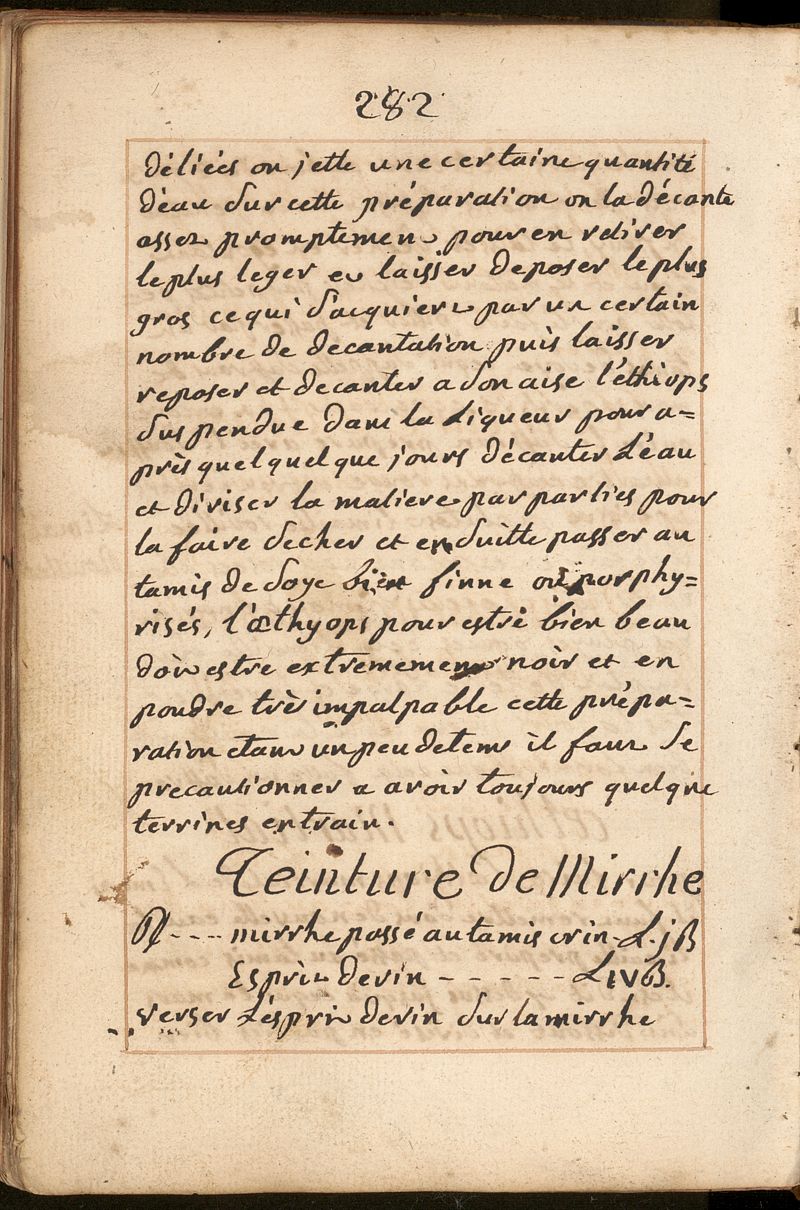 282
déliées on jette une certaine quantité
d'eau sur cette préparation on la décante
assez promptement pour en retirer
le plus leger et laisser deposer le plus
gros ce qui s'acquiert par un certain
nombre de decantation puis laisser
reposer et decanter a son aise l'éthiops
suspendue dans la Liqueur pour a=
près quelquelque jours décanter L'éau
et diviser la matiere par parties pour
la faire secher et ensuitte passer au
tamis de soye bien finne ou porphy=
risés, l'œthyops pour estre bien beau
doit estre extremement noir et en
poudre très impalpable cette prépa=
ration etant un peu de tems il faut se
precautionner a avoir toujours quelque
terrines entrain.
Teinture de Mirrhe
℞---- mirrhe passé au tamis crin - L.jß
Esprit de vin - - - - - - L ivß.
verser L'ésprit de vin sur la mirrhe